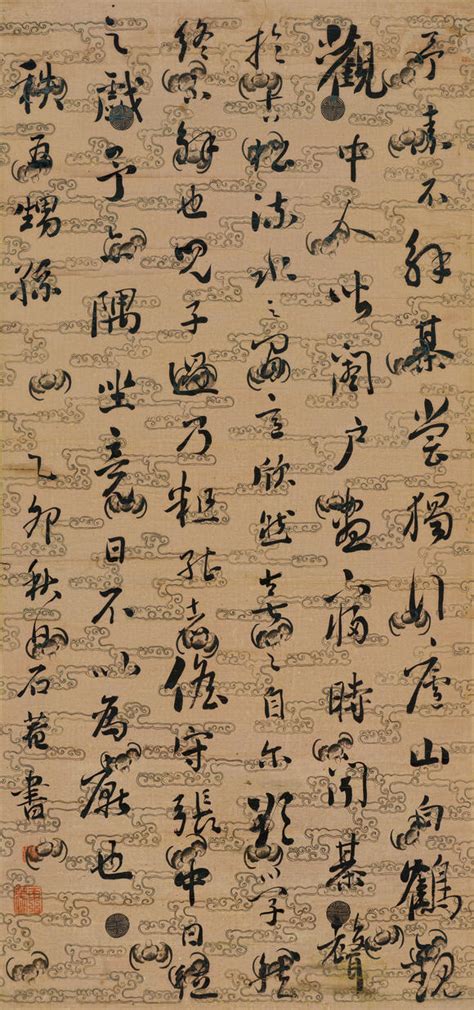 予素不解棊嘗獨遊廬山白鶴觀
觀中人皆闔戶晝寢時聞棊聲
於古松流水之間意欣然喜之自爾欲學然
終不解也兒子過乃粗能者儋守張中日從
之戲予亦隅坐竟日不以為厭也
秩五甥孫 乙卯秋日石菴書